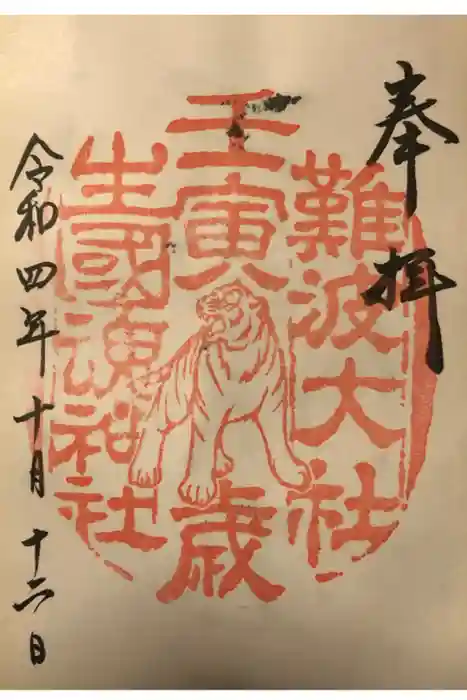 奉拝
難波大社
壬寅歳
生國魂神社
令和四年十月十二日